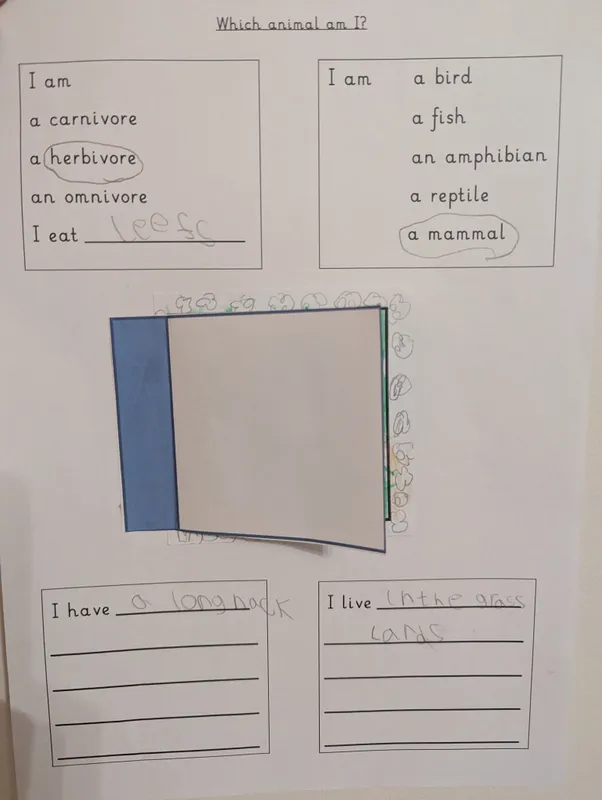 Which animal am I?
I am
a carnivore
a herbivore
an omnivore
I eat leefs
I am a bird
a fish
an amphibian
a reptile
a mammal
I have a long nack
I live in the grass
lands